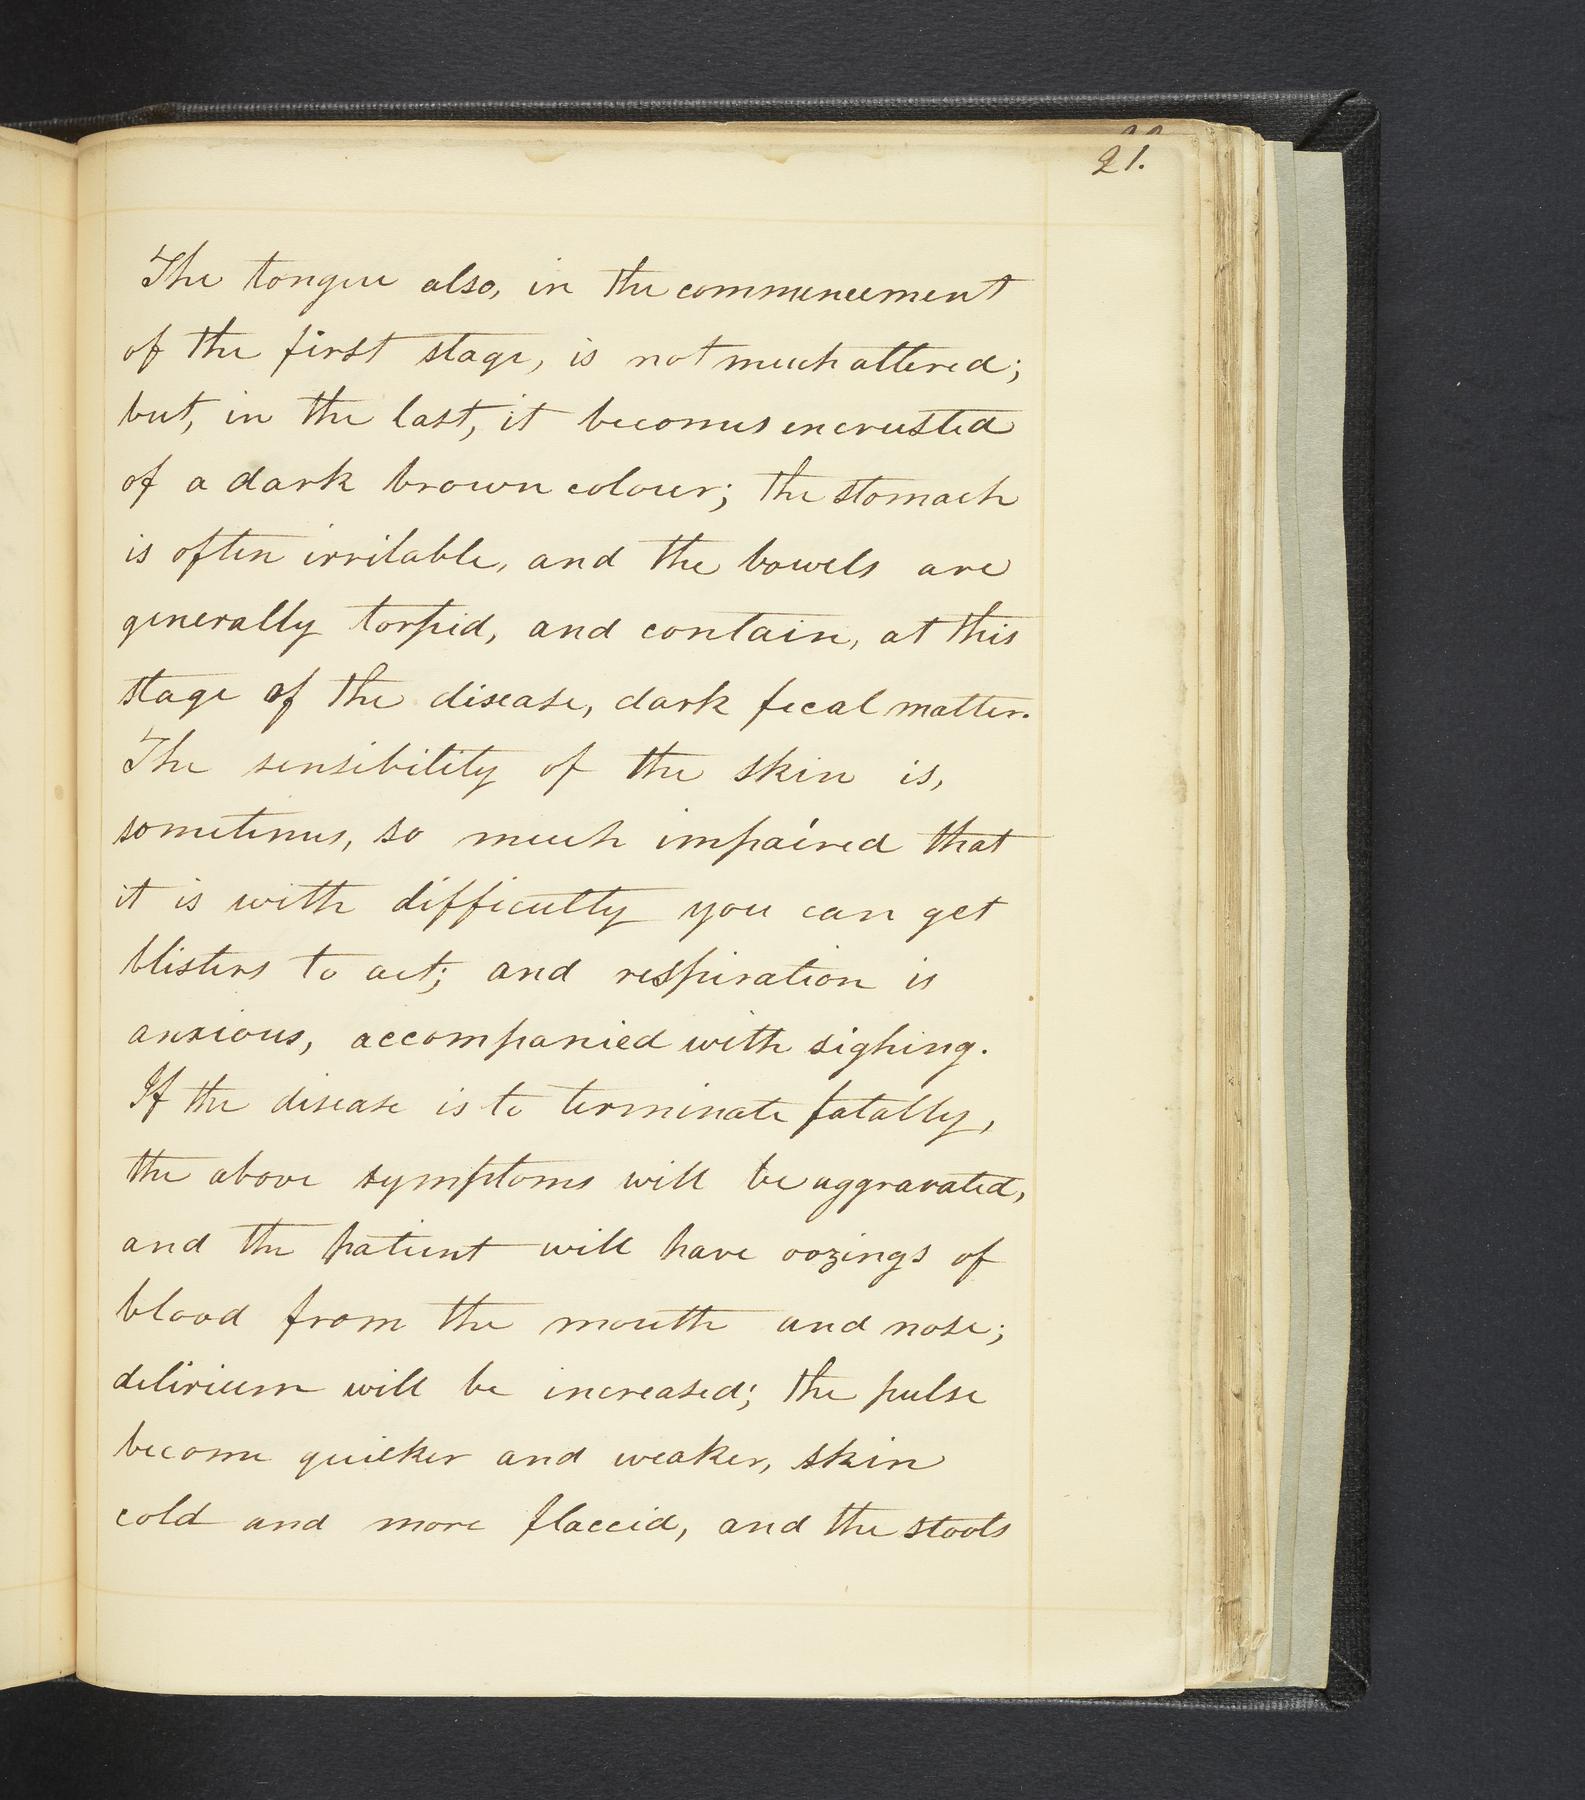 21.
The tongue also, in the commencement
of the first stage, is not much altered;
but, in the last, it becomes encrusted
of a dark brown colour; the stomach
is often irritable, and the bowels are
generally torpid, and contain, at this
stage of the disease, dark fecal matter.
The sensibility of the skin is,
sometimes, so much impaired that
it is with difficulty you can get
blisters to act; and respiration is
anxious, accompanied with sighing.
If the disease is to terminate fatally,
the above symptoms will be aggravated,
and the patient will have oozings of
blood from the mouth and nose;
delirium will be increased; the pulse
become quicker and weaker, skin
cold and more flaccid, and the stools